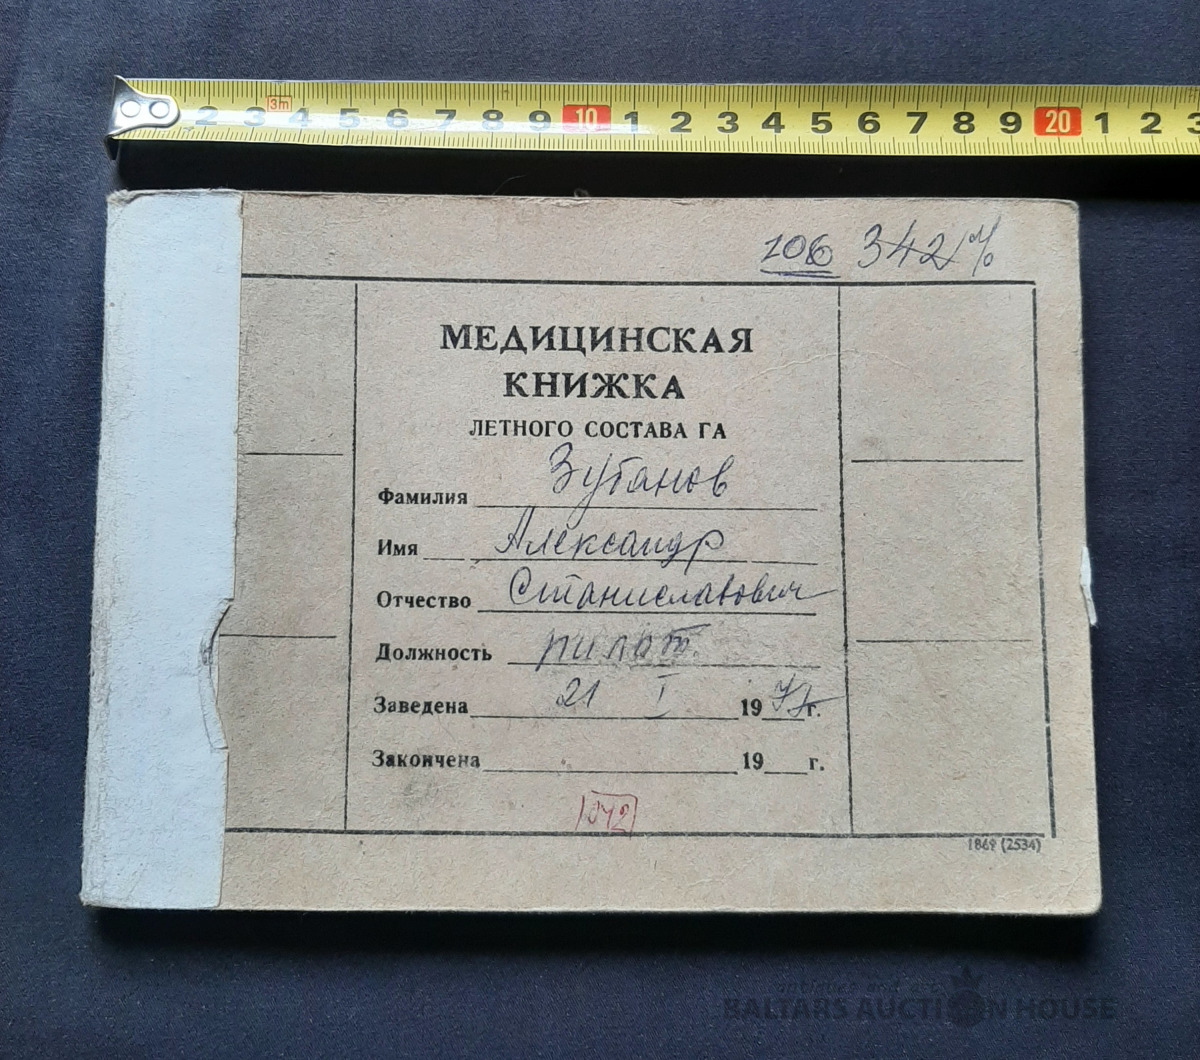 2 3 3m 4 5 6 7 8 9 10 1 2 3 4 5 6 7 8 9 20 1 2 3
106 342/%
МЕДИЦИНСКАЯ
КНИЖКА
ЛЕТНОГО СОСТАВА ГА
Фамилия Зубанов
Имя Александр
Отчество Станиславович
Должность пилот.
Заведена 21 I 1977г.
Закончена 19 г.
1042
1869 (2534)
antiques and art
BALTARS AUCTION HOUSE